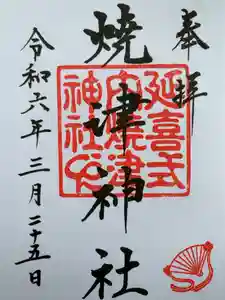 奉拝
延喜式
内焼津
神社之
焼津神社
令和六年三月二十五日